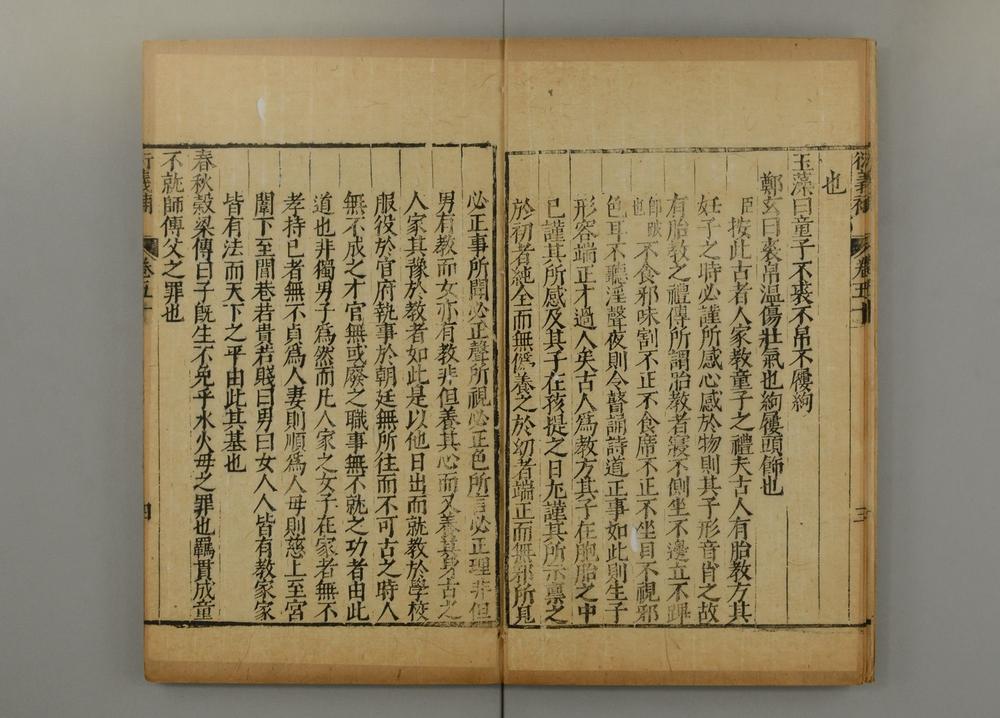 衍義補 卷五十 三
也
玉藻曰童子不裘不帛不屨絇
鄭玄曰裘帛溫傷壯氣也絇屨頭飾也
臣按此古者人家教童子之禮夫古人有胎教方其
妊子之時必謹所感心感於物則其子形音肖之故
有胎教之禮傳所謂胎教者寢不側坐不邊立不蹕
不食邪味割不正不食席不正不坐目不視邪
色耳不聽淫聲夜則令瞽誦詩道正事如此則生子
形容端正才過人矣古人爲教方其子在胞胎之中
已謹其所感及其子在孩提之日尤謹其所示禀之
於初者純全而無僞養之於幼者端正而無邪所見
必正事所聞必正聲所視必正色所言必正理非但
男有教而女亦有教非但養其心而又養其身古之
人家其豫於教者如此是以他日出而就教於學校
服役於官府執事於朝廷無所往而不可古之時人
無不成之才官無或廢之職事無不就之功者由此
道也非獨男子爲然而凡人家之女子在家者無不
孝持已者無不貞爲人妻則順爲人母則慈上至宮
闈下至閭巷若貴若賤曰男曰女人人皆有教家家
皆有法而天下之平由此其基也
春秋穀梁傳曰子旣生不免乎水火母之罪也羈貫成童
不就師傅父之罪也
衍義補 卷五十 四